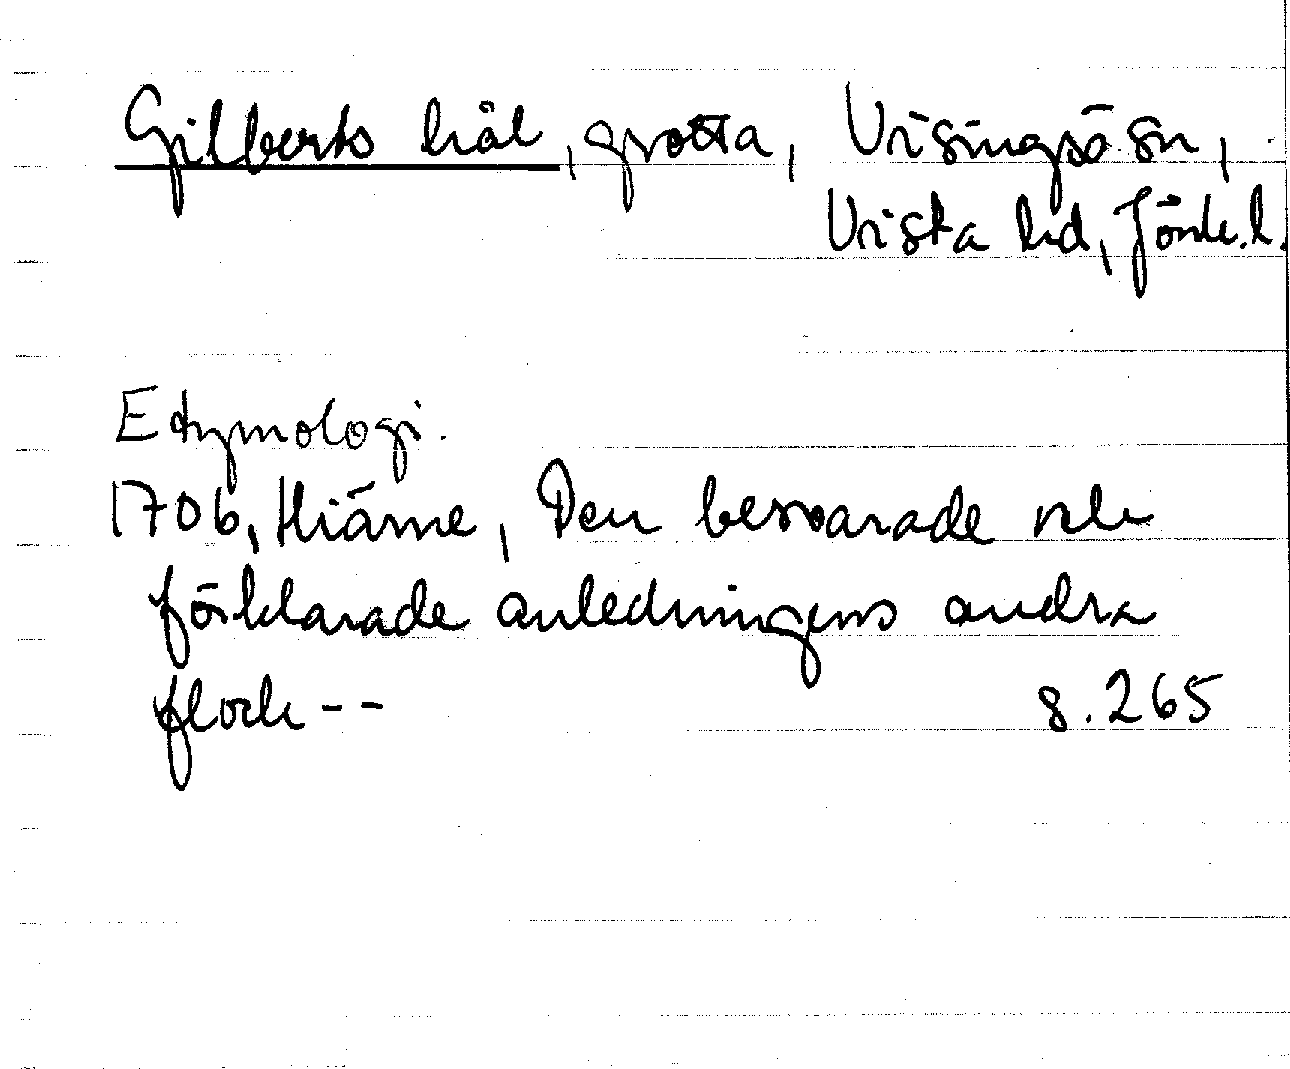 Gilberts hål, grotta, Visingsö sn,
Vista hd, Jönk.l.
Etymologi.
1706, Hiärne, Den besvarade och
förklarade anledningens andra
flock -- s. 265